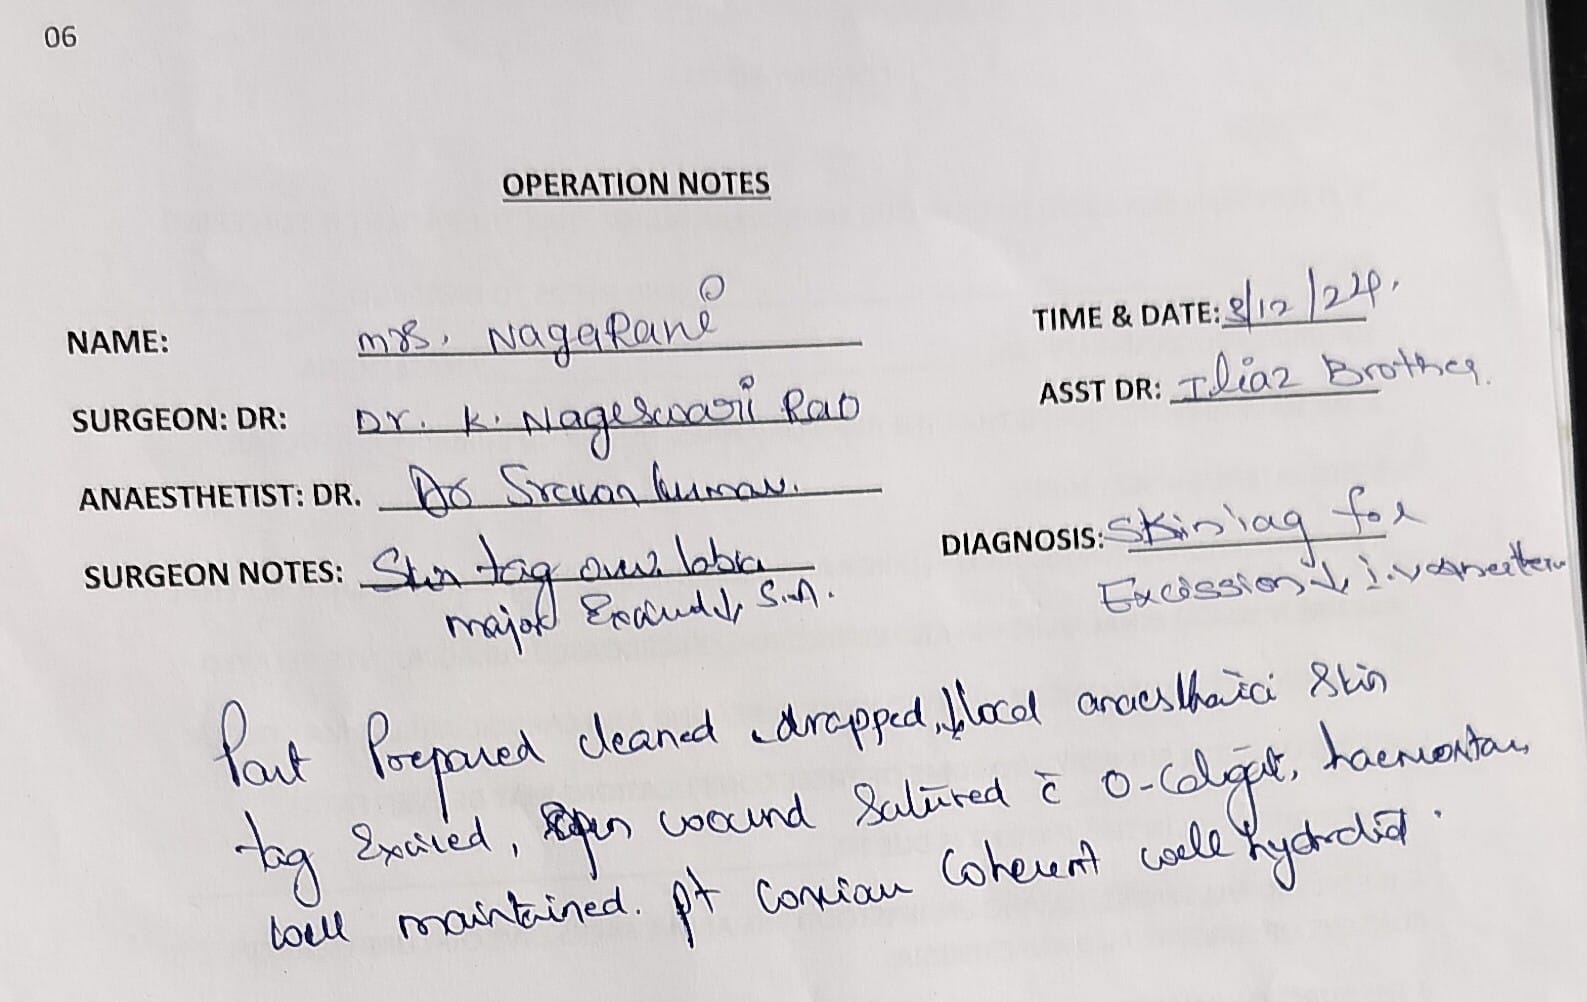 06
OPERATION NOTES
NAME: mrs. NagaRani
TIME & DATE: 3/12/24.
SURGEON: DR: Dr. K. Nageswari Rao
ASST DR: Iliaz Brother.
ANAESTHETIST: DR. Dr Sravan kumar.
SURGEON NOTES: Skin tag over labia
DIAGNOSIS: Skin tag for
major Excised ↓ S.A.
Excission ↓
Part Prepared cleaned drapped, ↓ local anaesthatici Skin
tag Excised, open wound Sutured c̄ 0-Catgut, haemostas
well maintained. pt Coherent well hydrated.